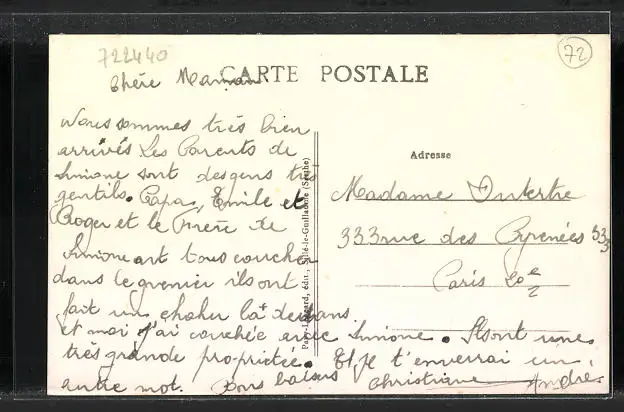 722440
72
CARTE POSTALE
Chère Maman
Nous sommes très bien
arrivés Les Parents de
Simone sont des gens très
gentils. Papa, Emile et
Roger et le Frère de
Simone ont tous coucher
dans le grenier ils ont
fait un chahu la dedans
et moi j'ai couchée avec Simone. Ils ont une
très grande propriétée. Et je t'enverrai un
autre mot. Bons baisers Christiane André
Adresse
Madame Dutertre
333 rue des Pyrenées 333
Paris 20e
édit., Sillé-le-Guillaume (Sarthe)